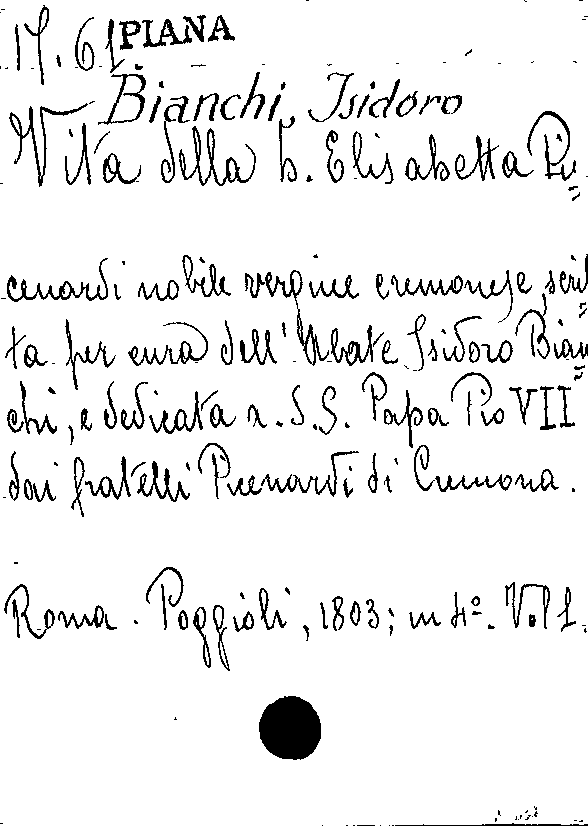 17.61 PIANA
Bianchi, Isidoro
Vita della b. Elisabetta Pi=
cenardi nobile vergine cremonese, scrit
ta per cura dell'Abate Isidoro Bian=
chi, e dedicata a. S.S. Papa Pio VII
dai fratelli Picenardi di Cremona.
Roma. Poggioli, 1803; in 4º. Vol 1.